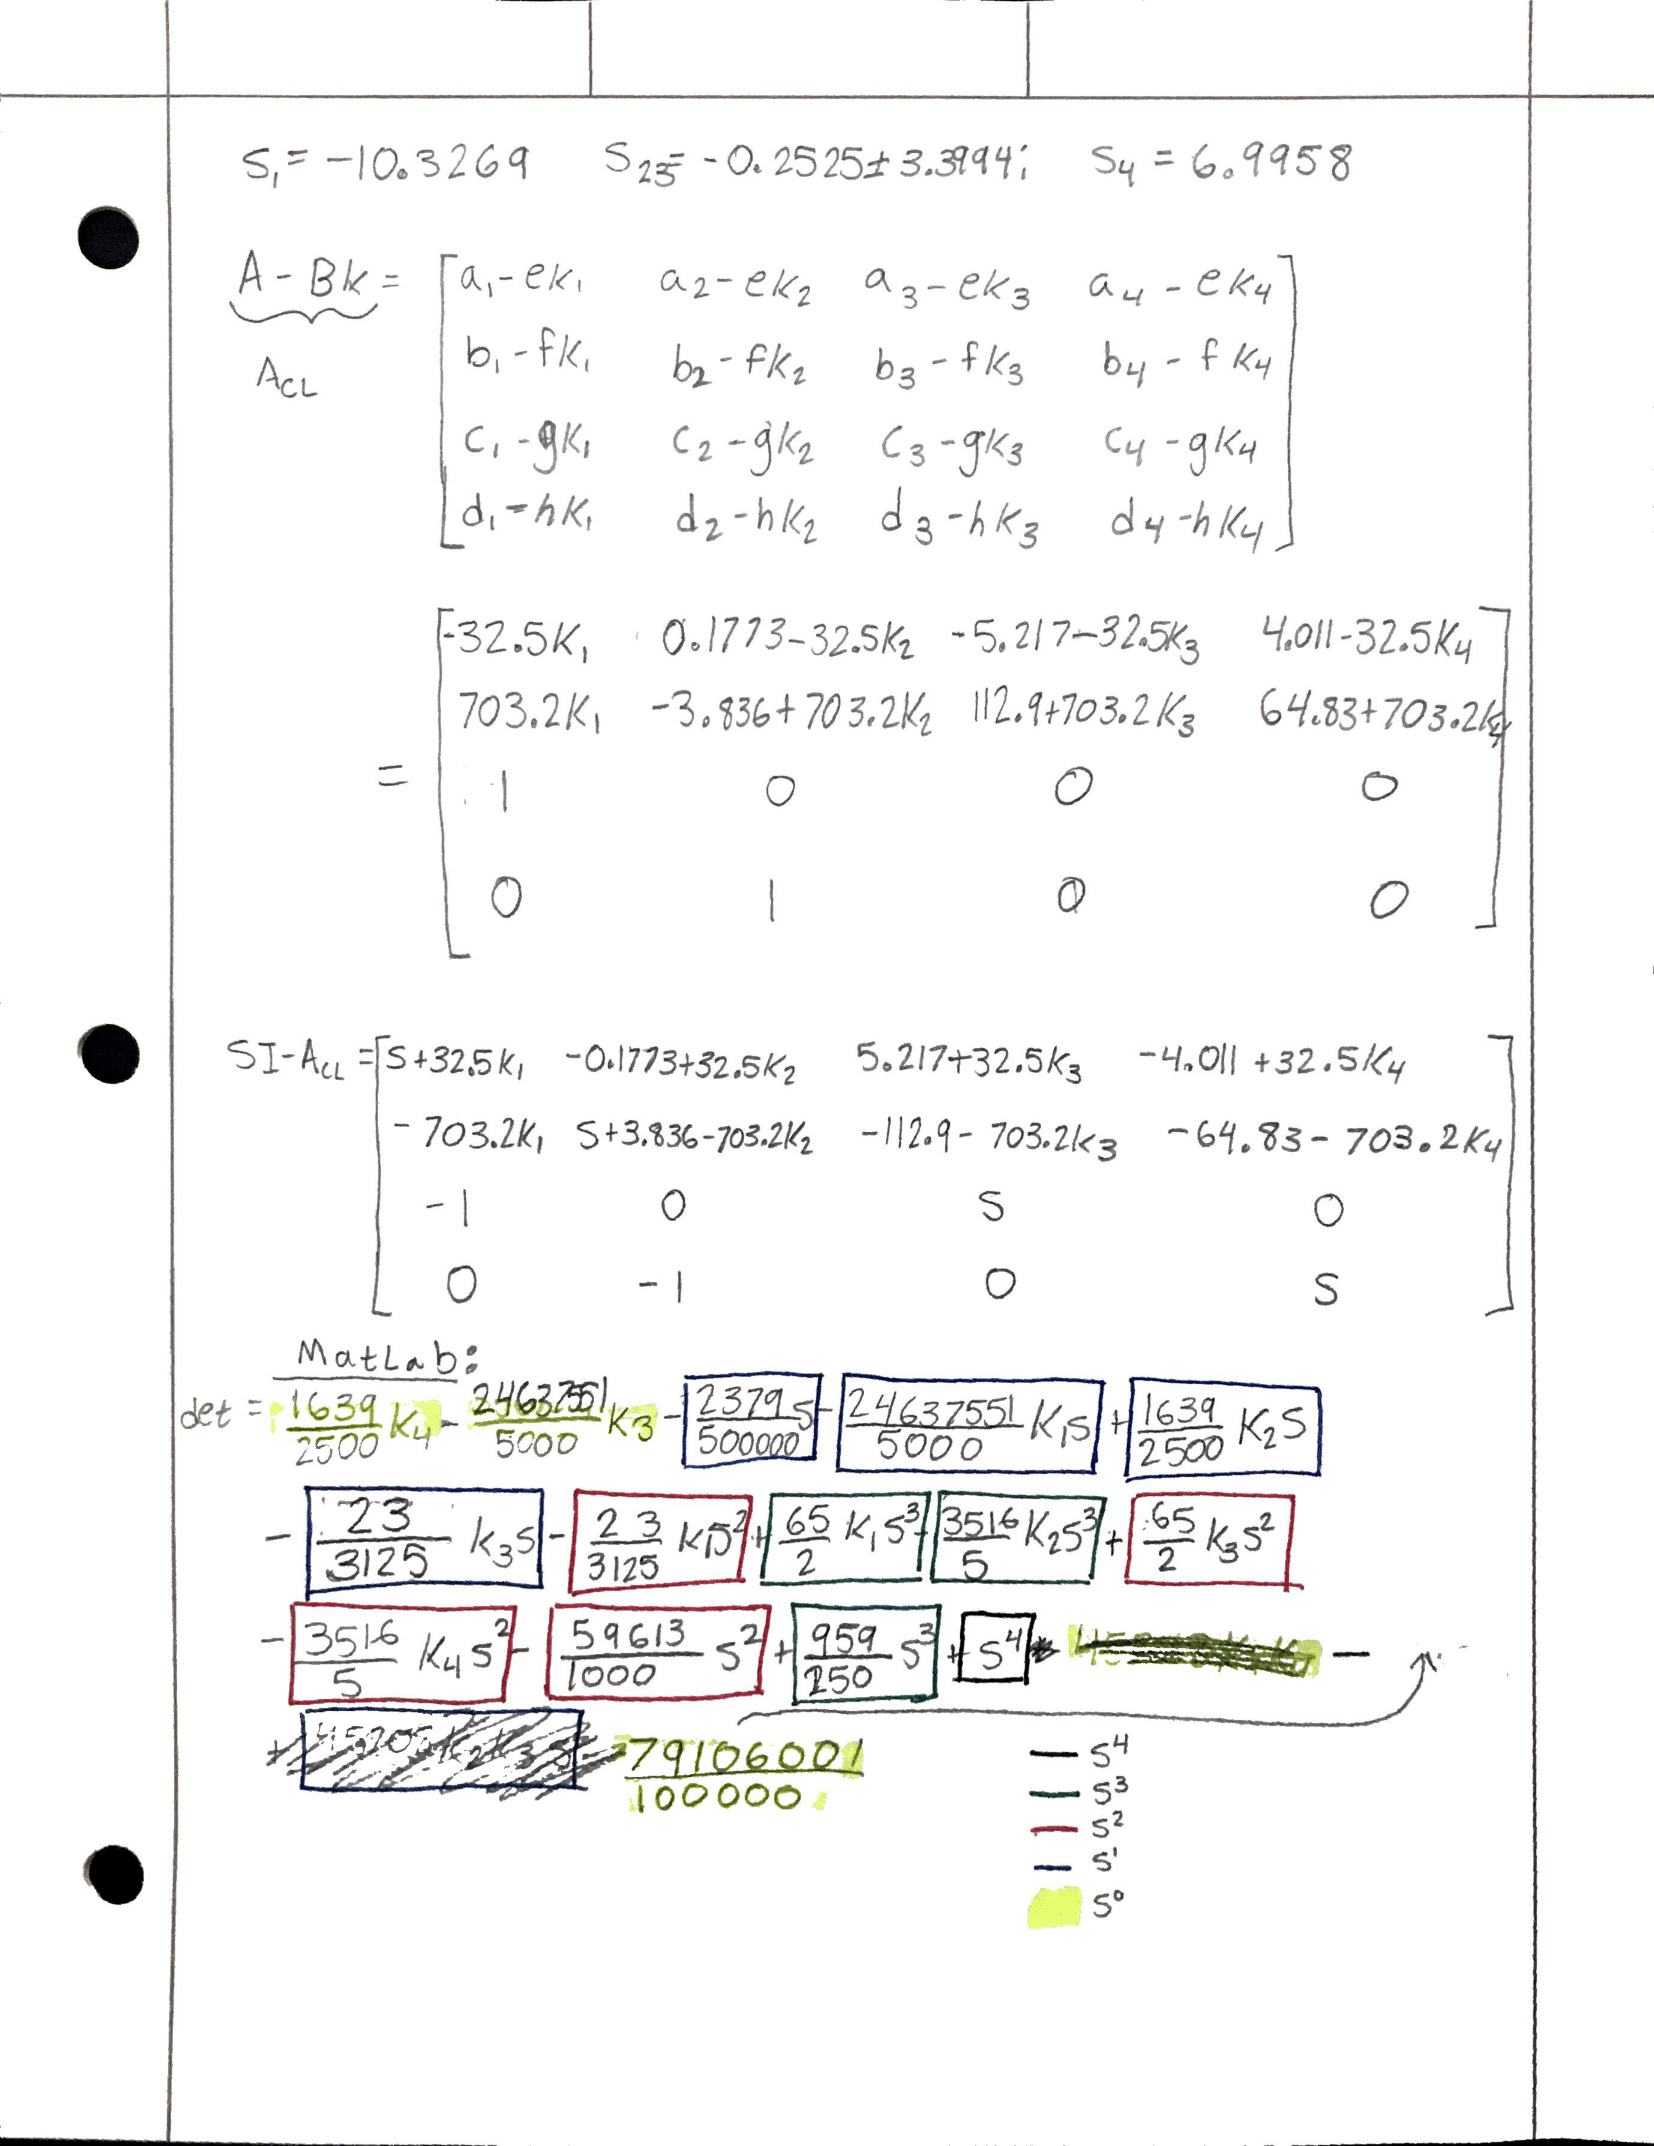 S₁ = -10.3269 S₂₃ = -0.2525 ± 3.3994i S₄ = 6.9958
A - Bk = [ a₁-ek₁ a₂-ek₂ a₃-ek₃ a₄-ek₄ ]
b₁-fk₁ b₂-fk₂ b₃-fk₃ b₄-fk₄
A_CL
c₁-gk₁ c₂-gk₂ c₃-gk₃ c₄-gk₄
d₁-hk₁ d₂-hk₂ d₃-hk₃ d₄-hk₄
-32.5k₁ 0.1773-32.5k₂ -5.217-32.5k₃ 4.011-32.5k₄
703.2k₁ -3.836+703.2k₂ 112.9+703.2k₃ 64.83+703.2k₄
= 1 0 0 0
0 1 0 0
SI-A_CL = [ S+32.5k₁ -0.1773+32.5k₂ 5.217+32.5k₃ -4.011+32.5k₄ ]
-703.2k₁ S+3.836-703.2k₂ -112.9-703.2k₃ -64.83-703.2k₄
-1 0 S 0
0 -1 0 S
MatLab:
det = 1639/2500 k₄ - 24637551/5000 k₃ - 2379/500000 s - 24637551/5000 k₁s + 1639/2500 k₂s
- 23/3125 k₃s - 23/3125 k₁s² + 65/2 k₁s³ - 3516/5 k₂s³ + 65/2 k₃s²
- 3516/5 k₄s² - 59613/1000 s² + 959/250 s³ + s⁴ -
79106001/100000
— s⁴
— s³
— s²
— s¹
s⁰